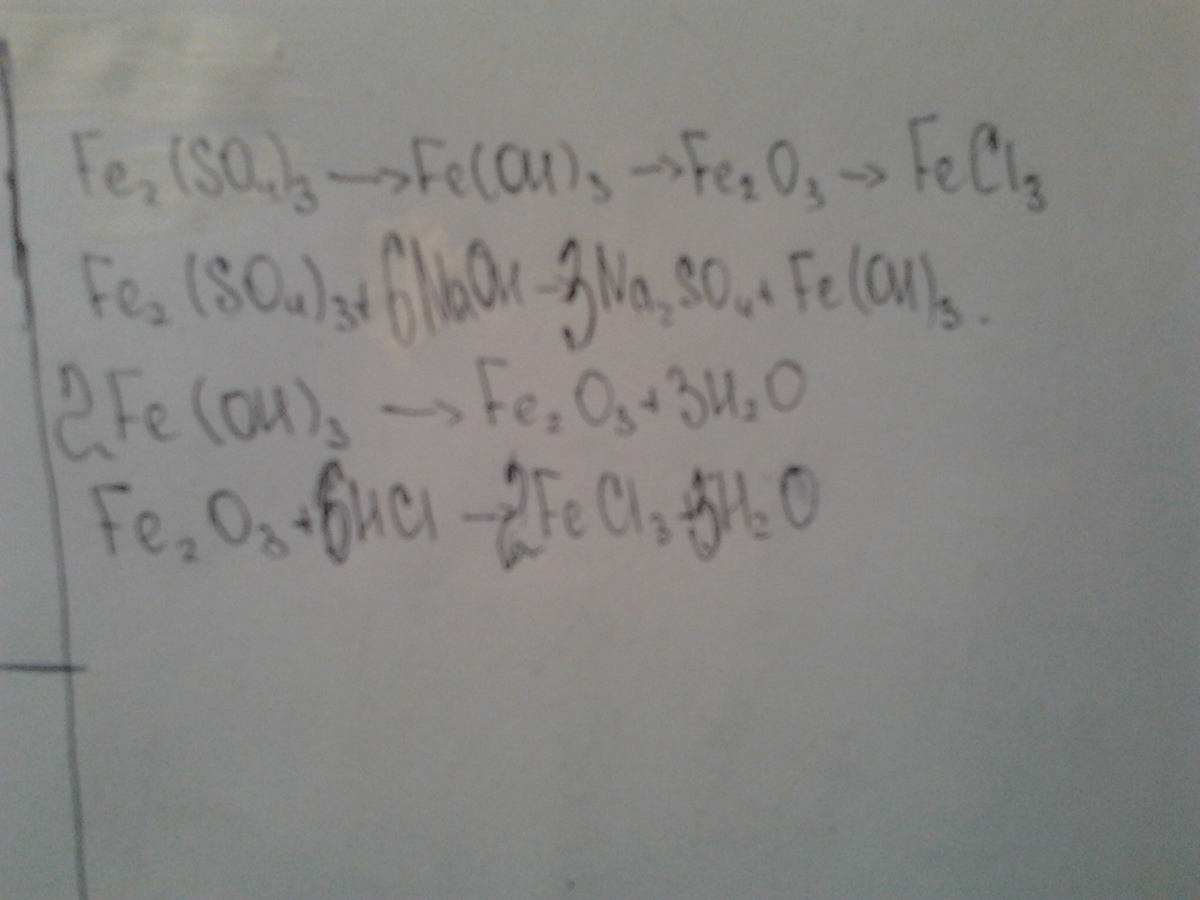 Fe₂(SO₄)₃ → Fe(OH)₃ → Fe₂O₃ → FeCl₃
Fe₂(SO₄)₃ + 6NaOH → 3Na₂SO₄ + Fe(OH)₃.
2Fe(OH)₃ → Fe₂O₃ + 3H₂O
Fe₂O₃ + 6HCl → 2FeCl₃ + 3H₂O